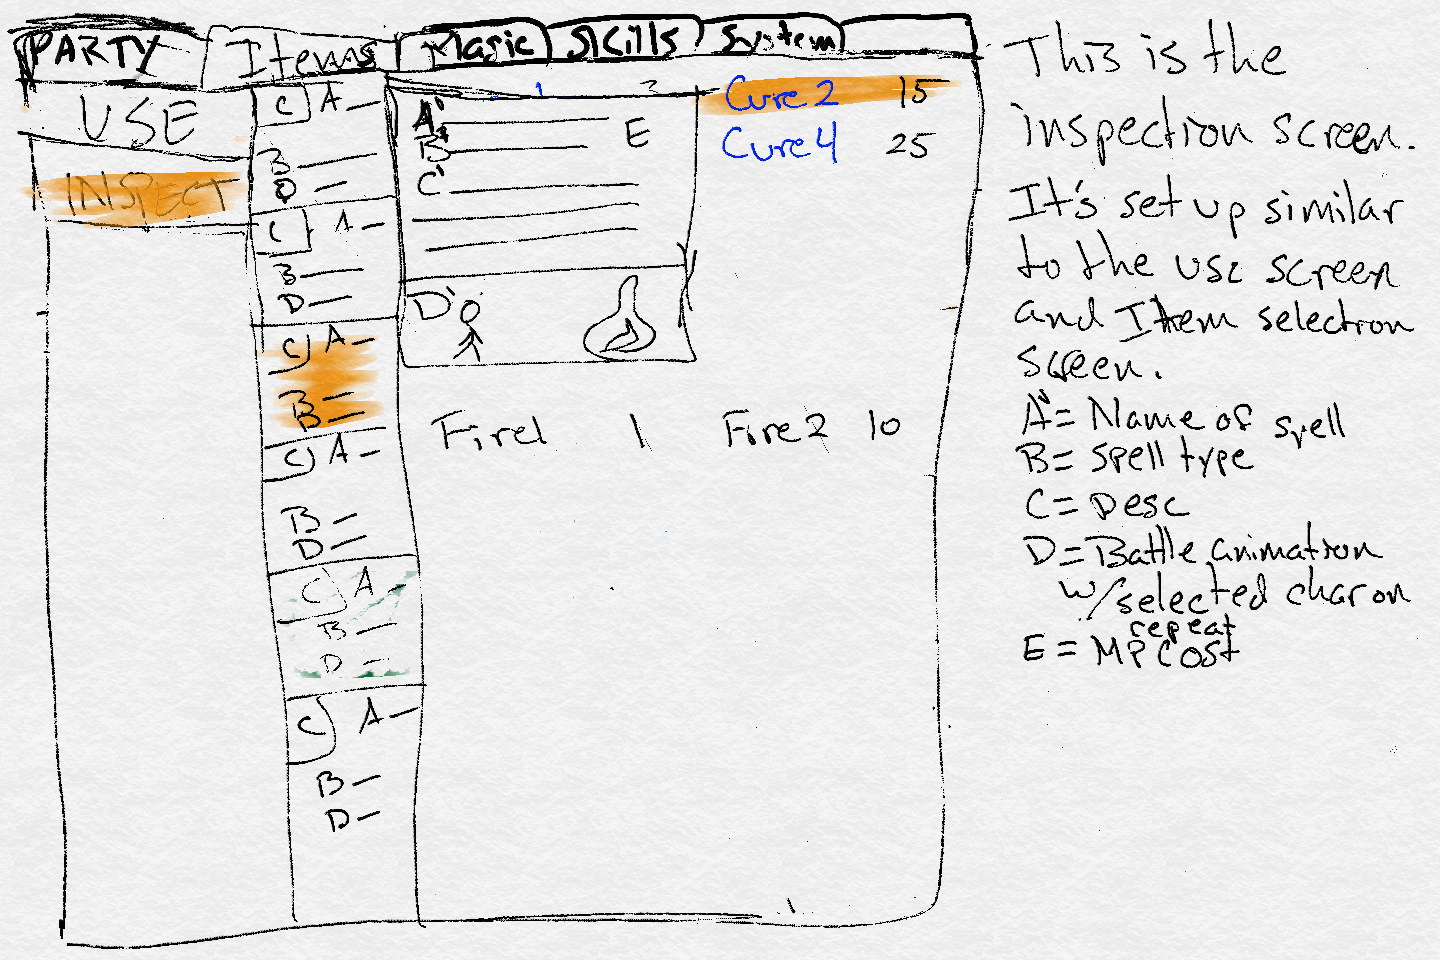 PARTY Items Magic Skills System
USE
INSPECT
C A
B
D
C A
B
D
C A
B
B
C A
B
D
C A
B
D
C A
B
D
1 2
A'
B
C'
E
D'
Cure 2 15
Cure 4 25
Fire 1 1 Fire 2 10
This is the
inspection screen.
It's set up similar
to the use screen
and Item selection
screen.
A' = Name of spell
B = spell type
C = Desc
D = Battle animation
w/selected char on
repeat
E = MP Cost